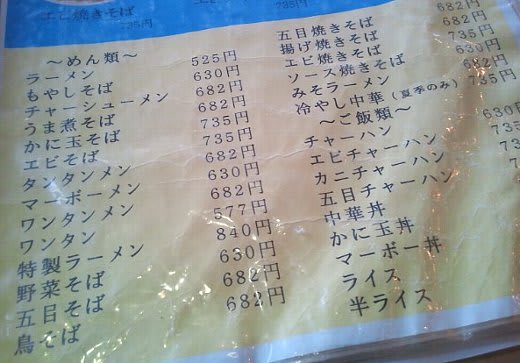 エビ焼きそば 735円
735円
～めん類～
ラーメン 525円
もやしそば 630円
チャーシューメン 682円
うま煮そば 682円
かに玉そば 735円
エビそば 735円
タンタンメン 682円
マーボーメン 630円
ワンタンメン 682円
ワンタン 577円
特製ラーメン 840円
野菜そば 630円
五目そば 682円
鳥そば 682円
五目焼きそば 682円
揚げ焼きそば 682円
エビ焼きそば 735円
ソース焼きそば 630円
みそラーメン 682円
冷やし中華(夏季のみ) 735円
～ご飯類～
チャーハン 630円
エビチャーハン
カニチャーハン
五目チャーハン
中華丼
かに玉丼
マーボー丼
ライス
半ライス